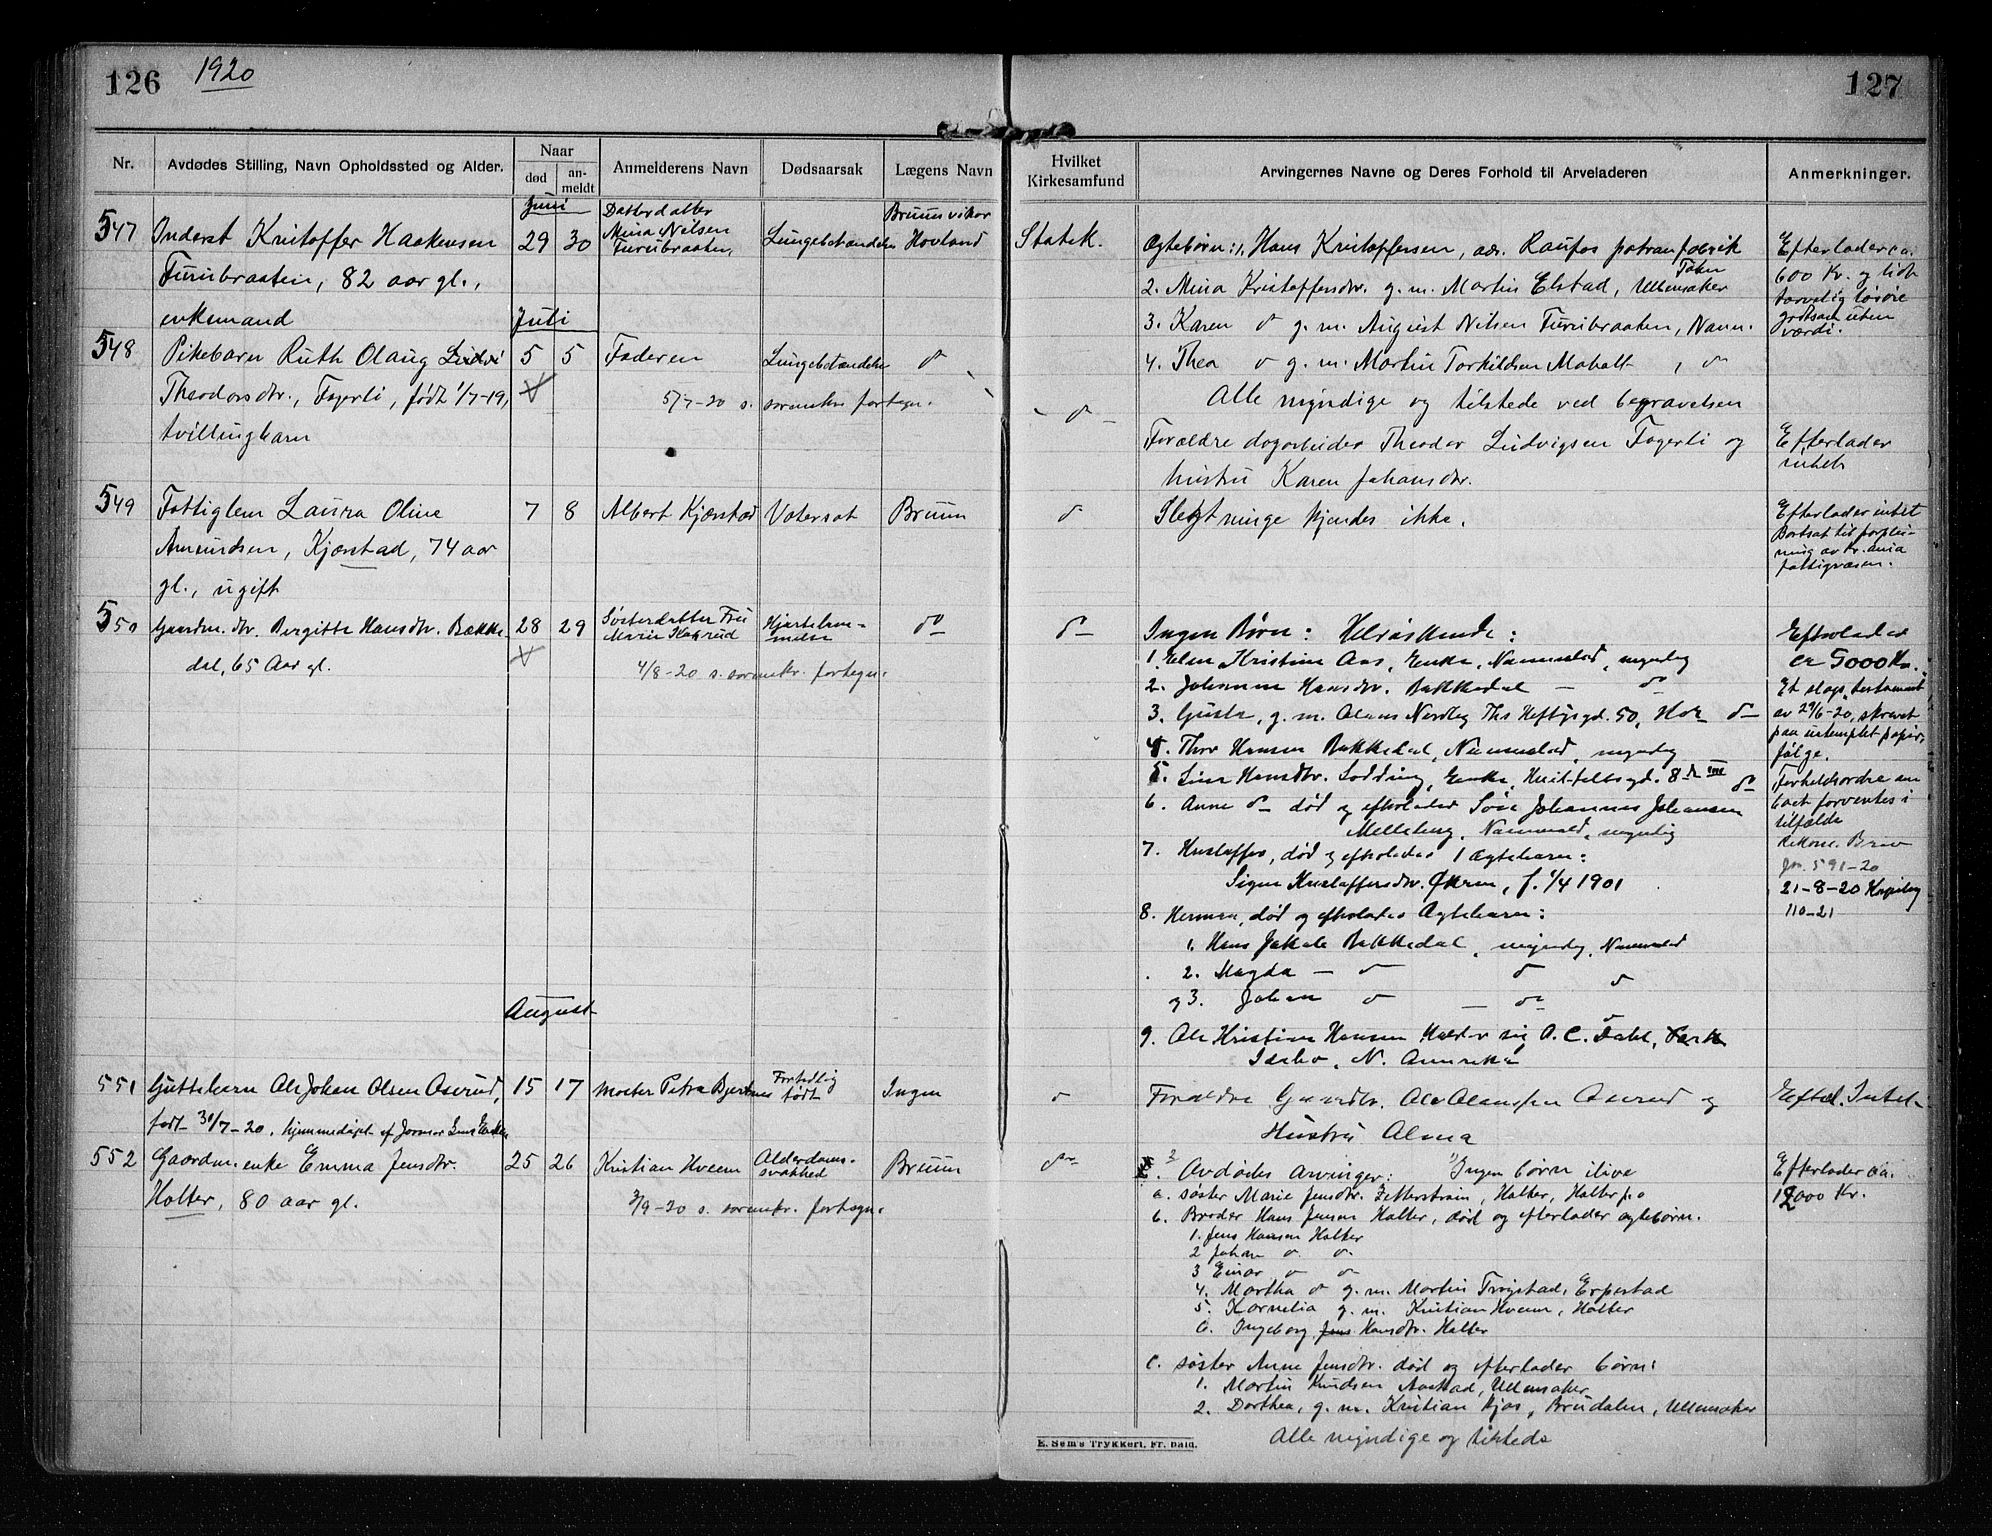 126 1920
127
Nr. Avdødes Stilling, Navn Opholdssted og Alder. Naar død anmeldt Anmelderens Navn Dødsaarsak Lægens Navn Hvilket Kirkesamfund Arvingernes Navne og Deres Forhold til Arveladeren Anmerkninger.
Juni
547 Inderst Kristoffer Haakensen
Furubraaten, 82 aar gl.,
enkemand
29 30
Datterdatter
Mina Nilsen
Furubraaten,
Lungebetændelse
Bruuns vikar
Hovland
Statsk.
Ægtebørn: 1, Hans Kristoffersen, adr. Raufos patronfabrik
Toten
2. Mina Kristoffersdtr. g. m. Martin Elstad, Ullensaker
3. Karen do g. m. August Nilsen Furubraaten, Nann.
4. Thea do g. m. Martin Torkildsen Moholt, do
Alle myndige og tilstede ved begravelsen
Efterlader ca.
600 Kr. og lidt
tarvelig løsøre
godtsom uten
værdi.
Juli
548 Pikebarn Ruth Olaug
Theodorsdtr., Fagerli, født 1/7-19,
tvillingbarn
5 5 Faderen Lungebetændelse do
5/7-20 s. sorenskr. fortegn.
do
Forældre dagarbeider Theodor Ludvigsen Fagerli og
hustru Karen Johansdtr.
Efterlader
intet
549 Fattiglem Laura Oline
Amundsen, Kjærstad, 74 aar
gl., ugift
7 8 Albert Kjærstad Vatersot Bruun do
Slegtninge kjendes ikke.
Efterlader intet
Bortsat til forplei-
ning av Kr.ania
fattigvæsen.
550 Gaardm. dtr. Bergitte Hansdtr. Bække-
dal, 65 Aar gl.
28 29
Søsterdatter Fru
Marie Hagrud
Hjertelam-
melse
do do
4/8-20 s. sorenskr. fortegn.
Ingen Børn: Helsøskende:
1. Elen Kristine Aas, Enke, Nannestad, myndig
2. Johanne Hansdtr. Bækkedal — do
3. Gusta, g. m. Olaus Nordby Ths Heftysgd. 50, do
4. Thor Hansen Bækkedal, Nannestad, myndig
5. Lina Hansdtr. Lodding, Enke, Huitfeltsgd. 8 do
6. Anne do død og efterlader Søn Johannes Johansen
Mellebyg, Nannestad, myndig
7. Kristoffer, død og efterlader 1 Ægtebarn:
Signe Kristoffersdtr. Økren, f. 1/4 1901
8. Herman, død og efterlader Ægtebarn:
1. Hans Jakob Bækkedal, myndig, Nannestad
2. Magda — do do do
og 3. Johan do — do
9. Ole Kristian Hansen kalder sig O. C. Dahl,
Idaho, N. Amerika
Efterlader
ca 5000 Kr.
Et slags testament
av 29/6-20, skrevet
paa ustemplet papir,
følge.
Forholdsordre om
boet forventes i
tilfælde
Rekom. Brev
Jn. 591-20
21-8-20
110-21
August
551 Guttebarn Ole Johan Olsen Aserud,
født 31/7-20, hjemmedøpt af Jormor
15 17 Moster Petra Bjertnes
Fortidlig
født
Ingen do
Forældre Gaardbr. Ole Olaussen Aserud og
Hustru Alma
Efterl. Intet
552 Gaardm.enke Emma Jensdtr.
Holter, 80 aar gl.
25 26 Kristian Hveem
Alderdoms-
svakhed
Bruun do
3/9-20 s. sorenskr. fortegn.
2. Avdødes arvinger: 1) Ingen børn ilive
a. søster Marie Jensdtr. Zetterstrøm, Holter, Holter p.o
b. Broder Hans Jensen Holter, død og efterlader egtebørn.
1. Jens Hansen Holter
2 Johan do do
3 Einar do do
4. Martha do g. m. Martin Trøgstad, Erpestad
5. Kornelia g. m. Kristian Hveem, Holter
6. Ingeborg Jens Hansdtr. Holter
c. søster Anne Jensdtr. død og efterlader børn:
1. Martin Knudsen Aastad, Ullensaker
2. Dorthea, g. m. Kristian Kjos, Brudalen, Ullensaker
Alle myndige og tilstede
Efterlader ca.
12000 Kr.
E. Sem's Trykkeri, Fr.hald.